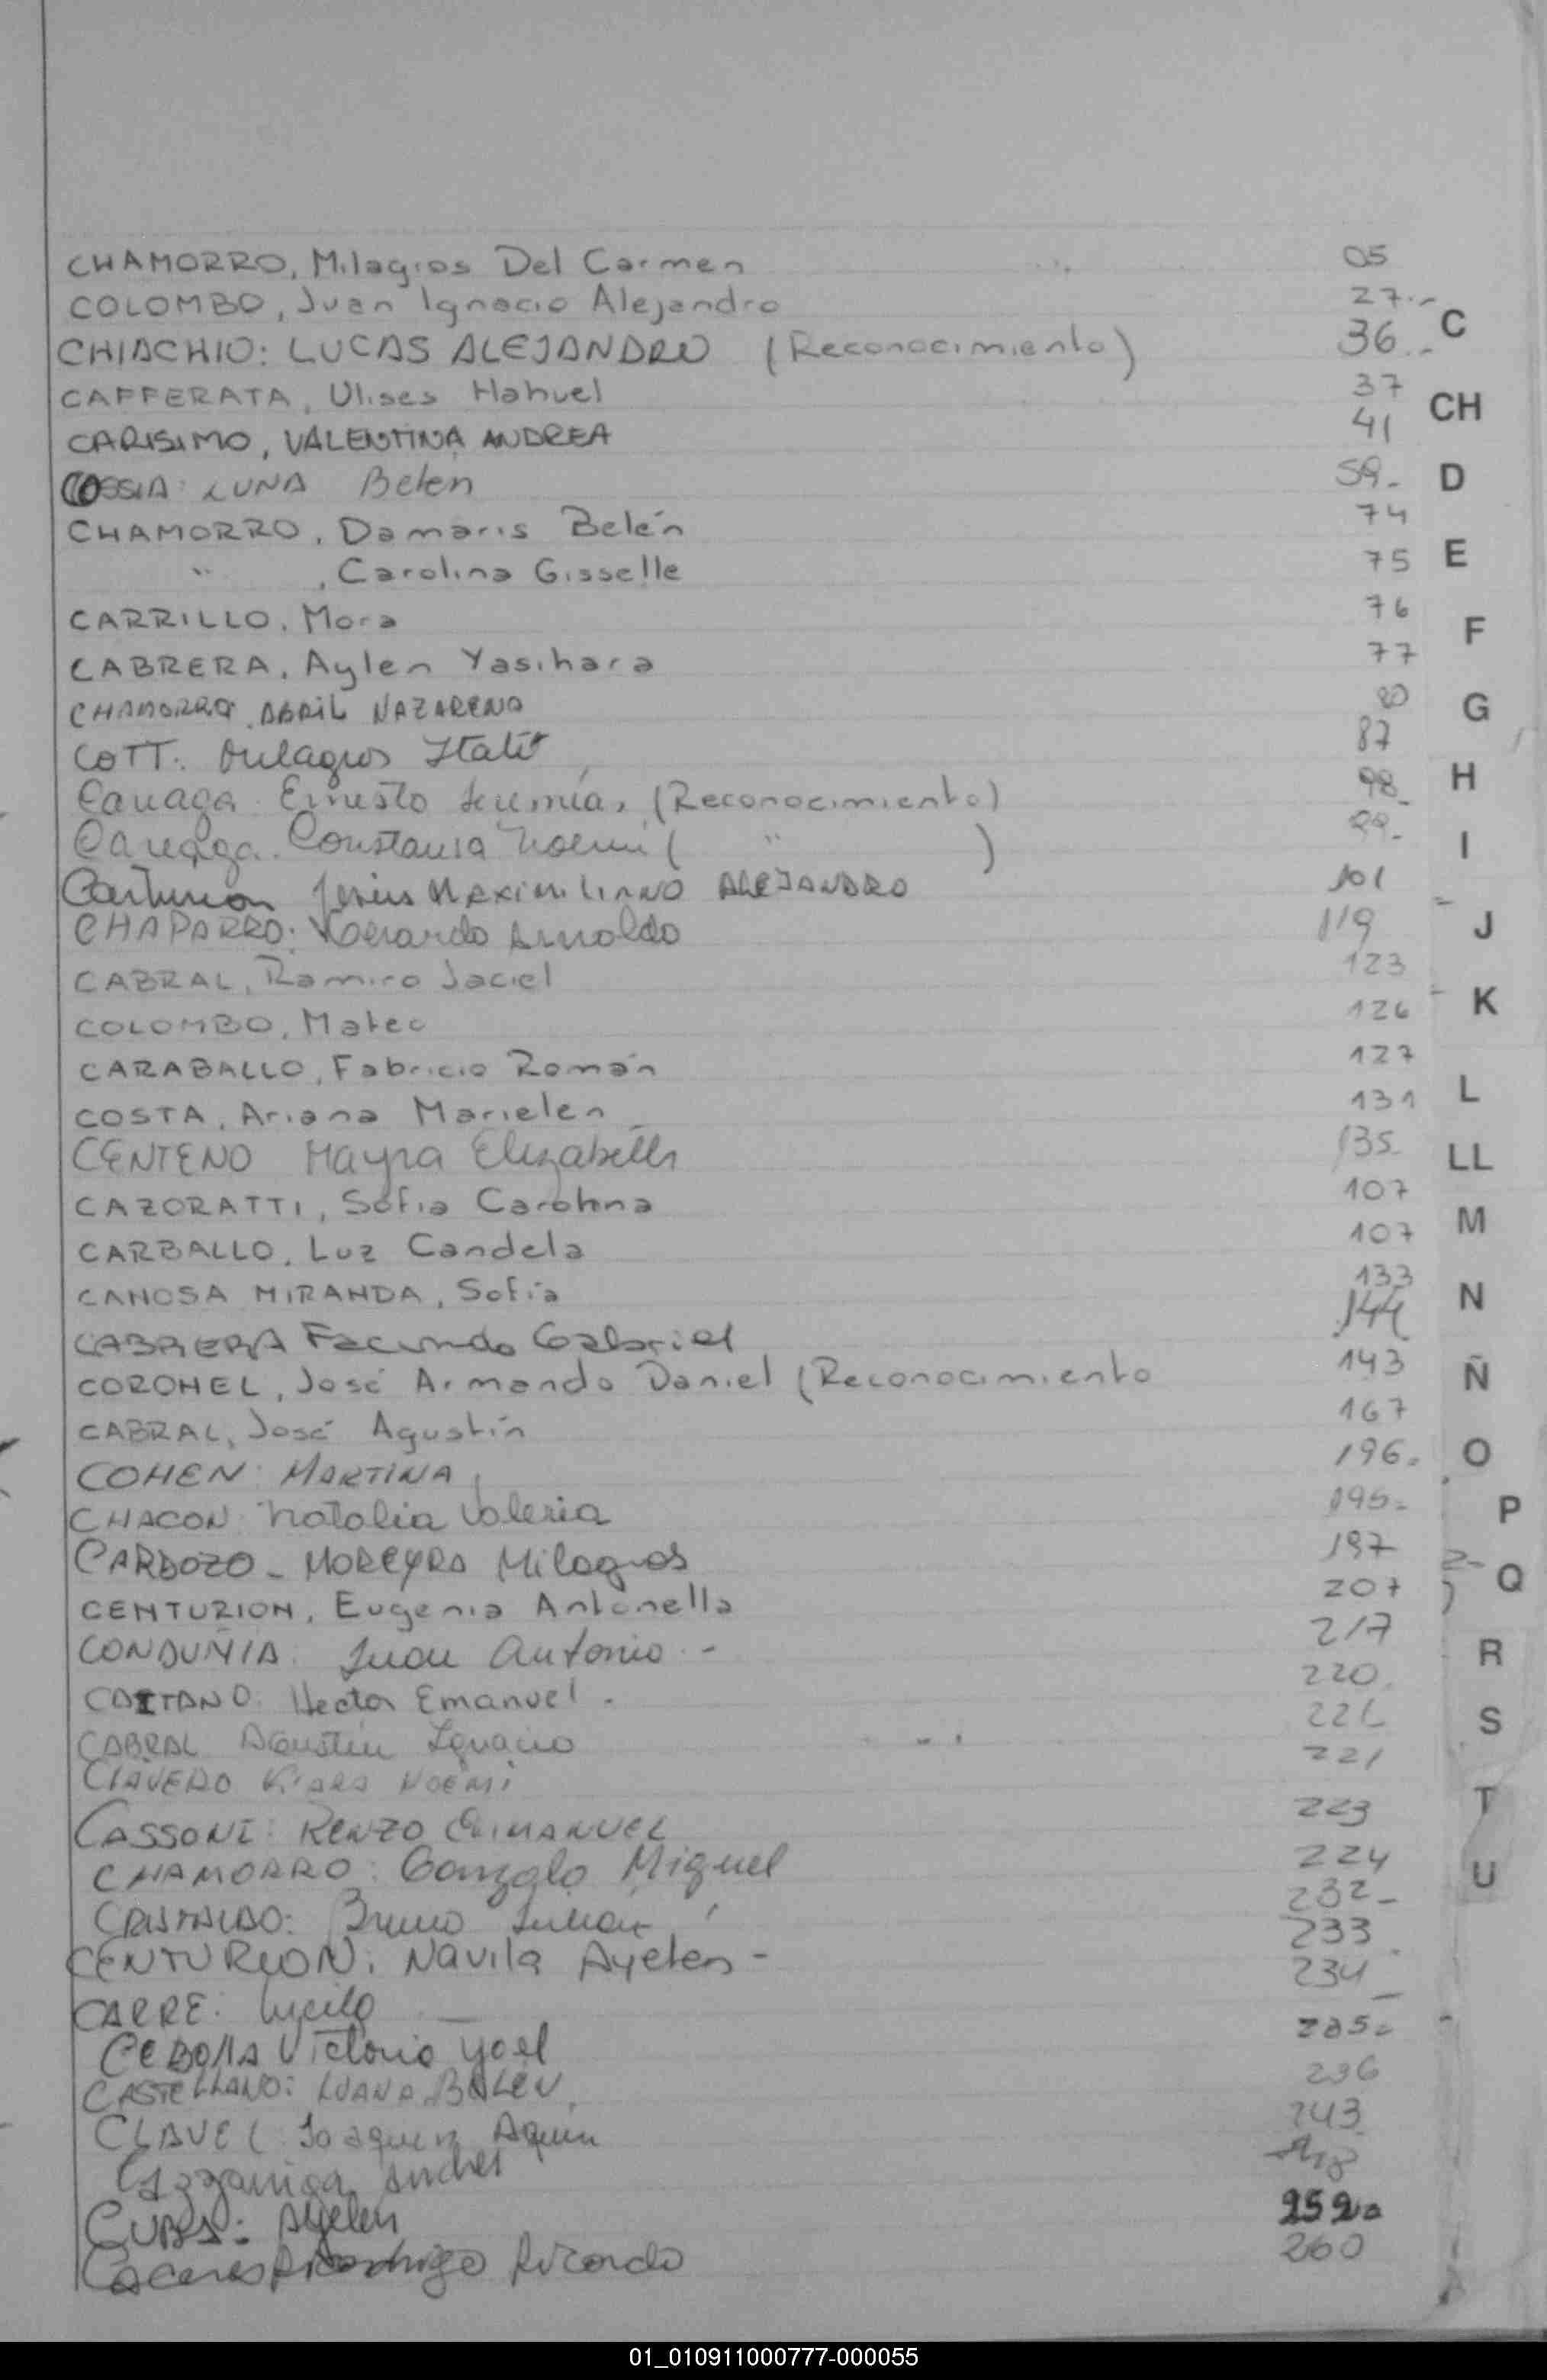 CHAMORRO, Milagros Del Carmen 05
COLOMBO, Juan Ignacio Alejandro 27.-
CHIACHIO: LUCAS ALEJANDRO (Reconocimiento) 36.-
C
CAFFERATA, Ulises Nahuel 37
CH
CARISIMO, VALENTINA ANDREA 41
COSSIA: LUNA Belen 59.-
D
CHAMORRO, Damaris Belén 74
" , Carolina Gisselle 75
E
CARRILLO, Mora 76
F
CABRERA, Aylen Yasihara 77
CHAMORRO. ABRIL NAZARENO 80
G
COTT. Milagros Itatí 87
H
Ernesto Jeremías (Reconocimiento) 98.-
Constansa Noemi ( " ) 99.-
I
Centurion Jesús MAXIMILIANO ALEJANDRO 101
CHAPARRO: Gerardo Arnoldo 119
J
CABRAL, Ramiro Jaciel 123
K
COLOMBO, Mateo 126
CARABALLO, Fabricio Román 127
COSTA, Ariana Marielen 131
L
CENTENO Mayra Elizabeth 135
LL
CAZORATTI, Sofia Carolina 107
CARBALLO, Luz Candela 107
M
CANOSA MIRANDA, Sofía 133
N
CABRERA Facundo Gabriel 144
CORONEL, José Armando Daniel (Reconocimiento 143
Ñ
CABRAL, José Agustín 167
COHEN: MARTINA 196.
O
CHACON: Natalia Valeria 195.-
P
CARDOZO - MOREYRA Milagros 197
Q
CENTURION, Eugenia Antonella 207
CONDUÑIA: Juan Antonio.- 217
R
CAETANO: Hector Emanuel. 220.
CABRAL Agustin Ignacio
S
CLAVERO Kiara NOEMI 221
CASSONE: RENZO EMMANUEL 223
T
CHAMORRO: Gonzalo Miguel 224
U
CRISTALDO: Bruno Julian 232-
CENTURION: Navila Ayelen - 233
CARRE: Lucila 234
Victorio Yoel 235-
CASTELLANO: LUANA BELEN 236
CLAVEL Joaquin 243
Cazzaniga
CUBA: Ayelen 259
Caceres Rodrigo Ricardo 260
01_010911000777-000055